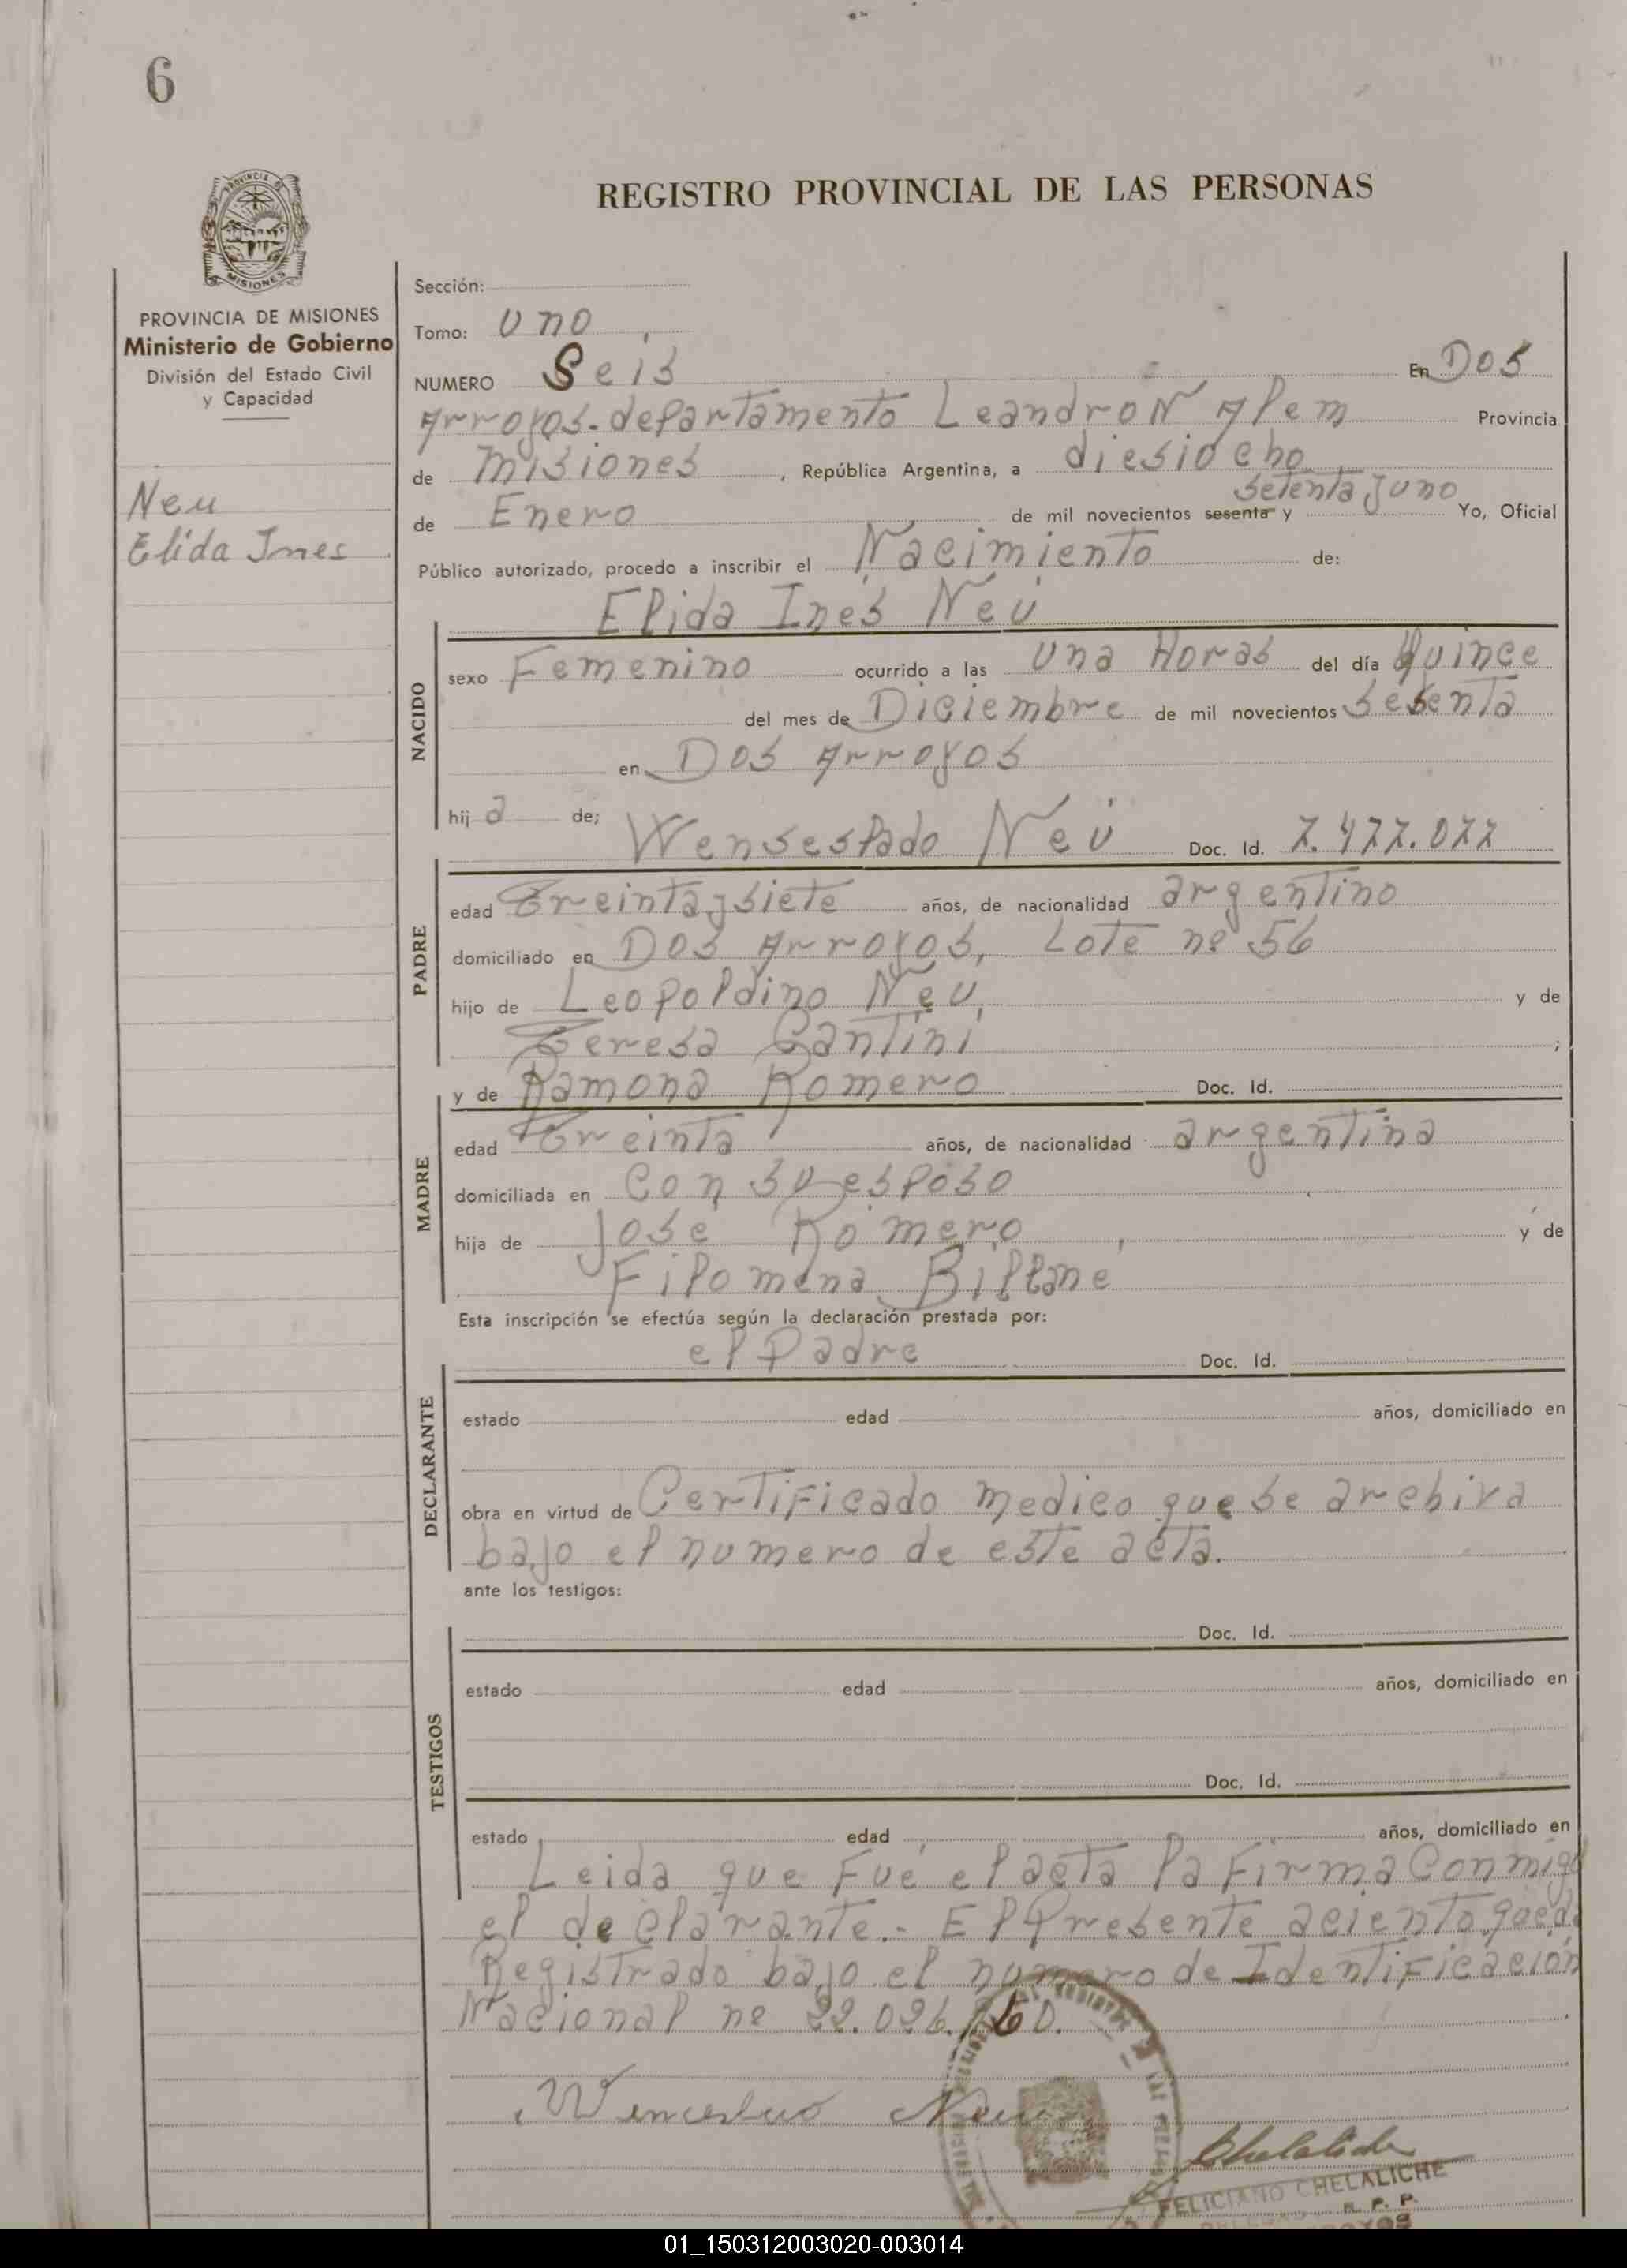 6
PROVINCIA
MISIONES
REGISTRO PROVINCIAL DE LAS PERSONAS
PROVINCIA DE MISIONES
Ministerio de Gobierno
División del Estado Civil
y Capacidad
Neu
Elida Ines
Sección:
Tomo: uno
NUMERO Seis En Dos
Arroyos.departamento Leandro N Alem Provincia
de Misiones, República Argentina, a diesiocho
setenta y uno
de Enero de mil novecientos sesenta y Yo, Oficial
Público autorizado, procedo a inscribir el Nacimiento de:
Elida Inés Neu
NACIDO
sexo Femenino ocurrido a las una Horas del día Quince
del mes de Diciembre de mil novecientos setenta
en Dos Arroyos
hija de; Wenseslado Neu Doc. Id. 7.477.077
PADRE
edad Treinta y siete años, de nacionalidad argentino
domiciliado en Dos Arroyos, Lote nº 56
hijo de Leopoldino Neu, y de
Teresa Cantini ;
y de Ramona Romero Doc. Id.
MADRE
edad Treinta años, de nacionalidad argentina
domiciliada en Con su esposo
hija de José Romero, y de
Filomena
Esta inscripción se efectúa según la declaración prestada por:
el Padre Doc. Id.
DECLARANTE
estado edad años, domiciliado en
obra en virtud de Certificado medico que se archiva
bajo el numero de este acta.
ante los testigos:
Doc. Id.
TESTIGOS
estado edad años, domiciliado en
Doc. Id.
estado edad años, domiciliado en
Leida que Fué el acta la Firma Conmigo
el declarante.- El Presente aciento queda
Registrado bajo el numero de Identificación
Nacional nº
Neu
Chelaliche
FELICIANO CHELALICHE
R. P. P.
01_150312003020-003014